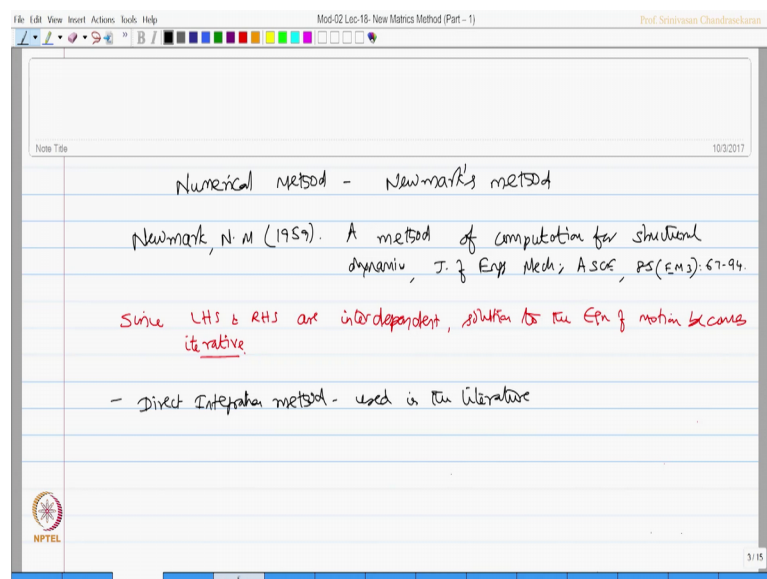 File Edit View Insert Actions Tools Help
Mod-02 Lec-18- New Matrics Method (Part – 1)
Prof. Srinivasan Chandrasekaran
B I
Note Title
10/3/2017
Numerical Method - Newmark's method
Newmark, N.M (1959). A method of computation for structural
dynamic, J. of Eng Mech; ASCE, 85(EM3): 67-94.
Since LHS & RHS are interdependent, solution to the Eqn of motion becomes
iterative.
- Direct Integration method - used in the literature
NPTEL
3 / 15